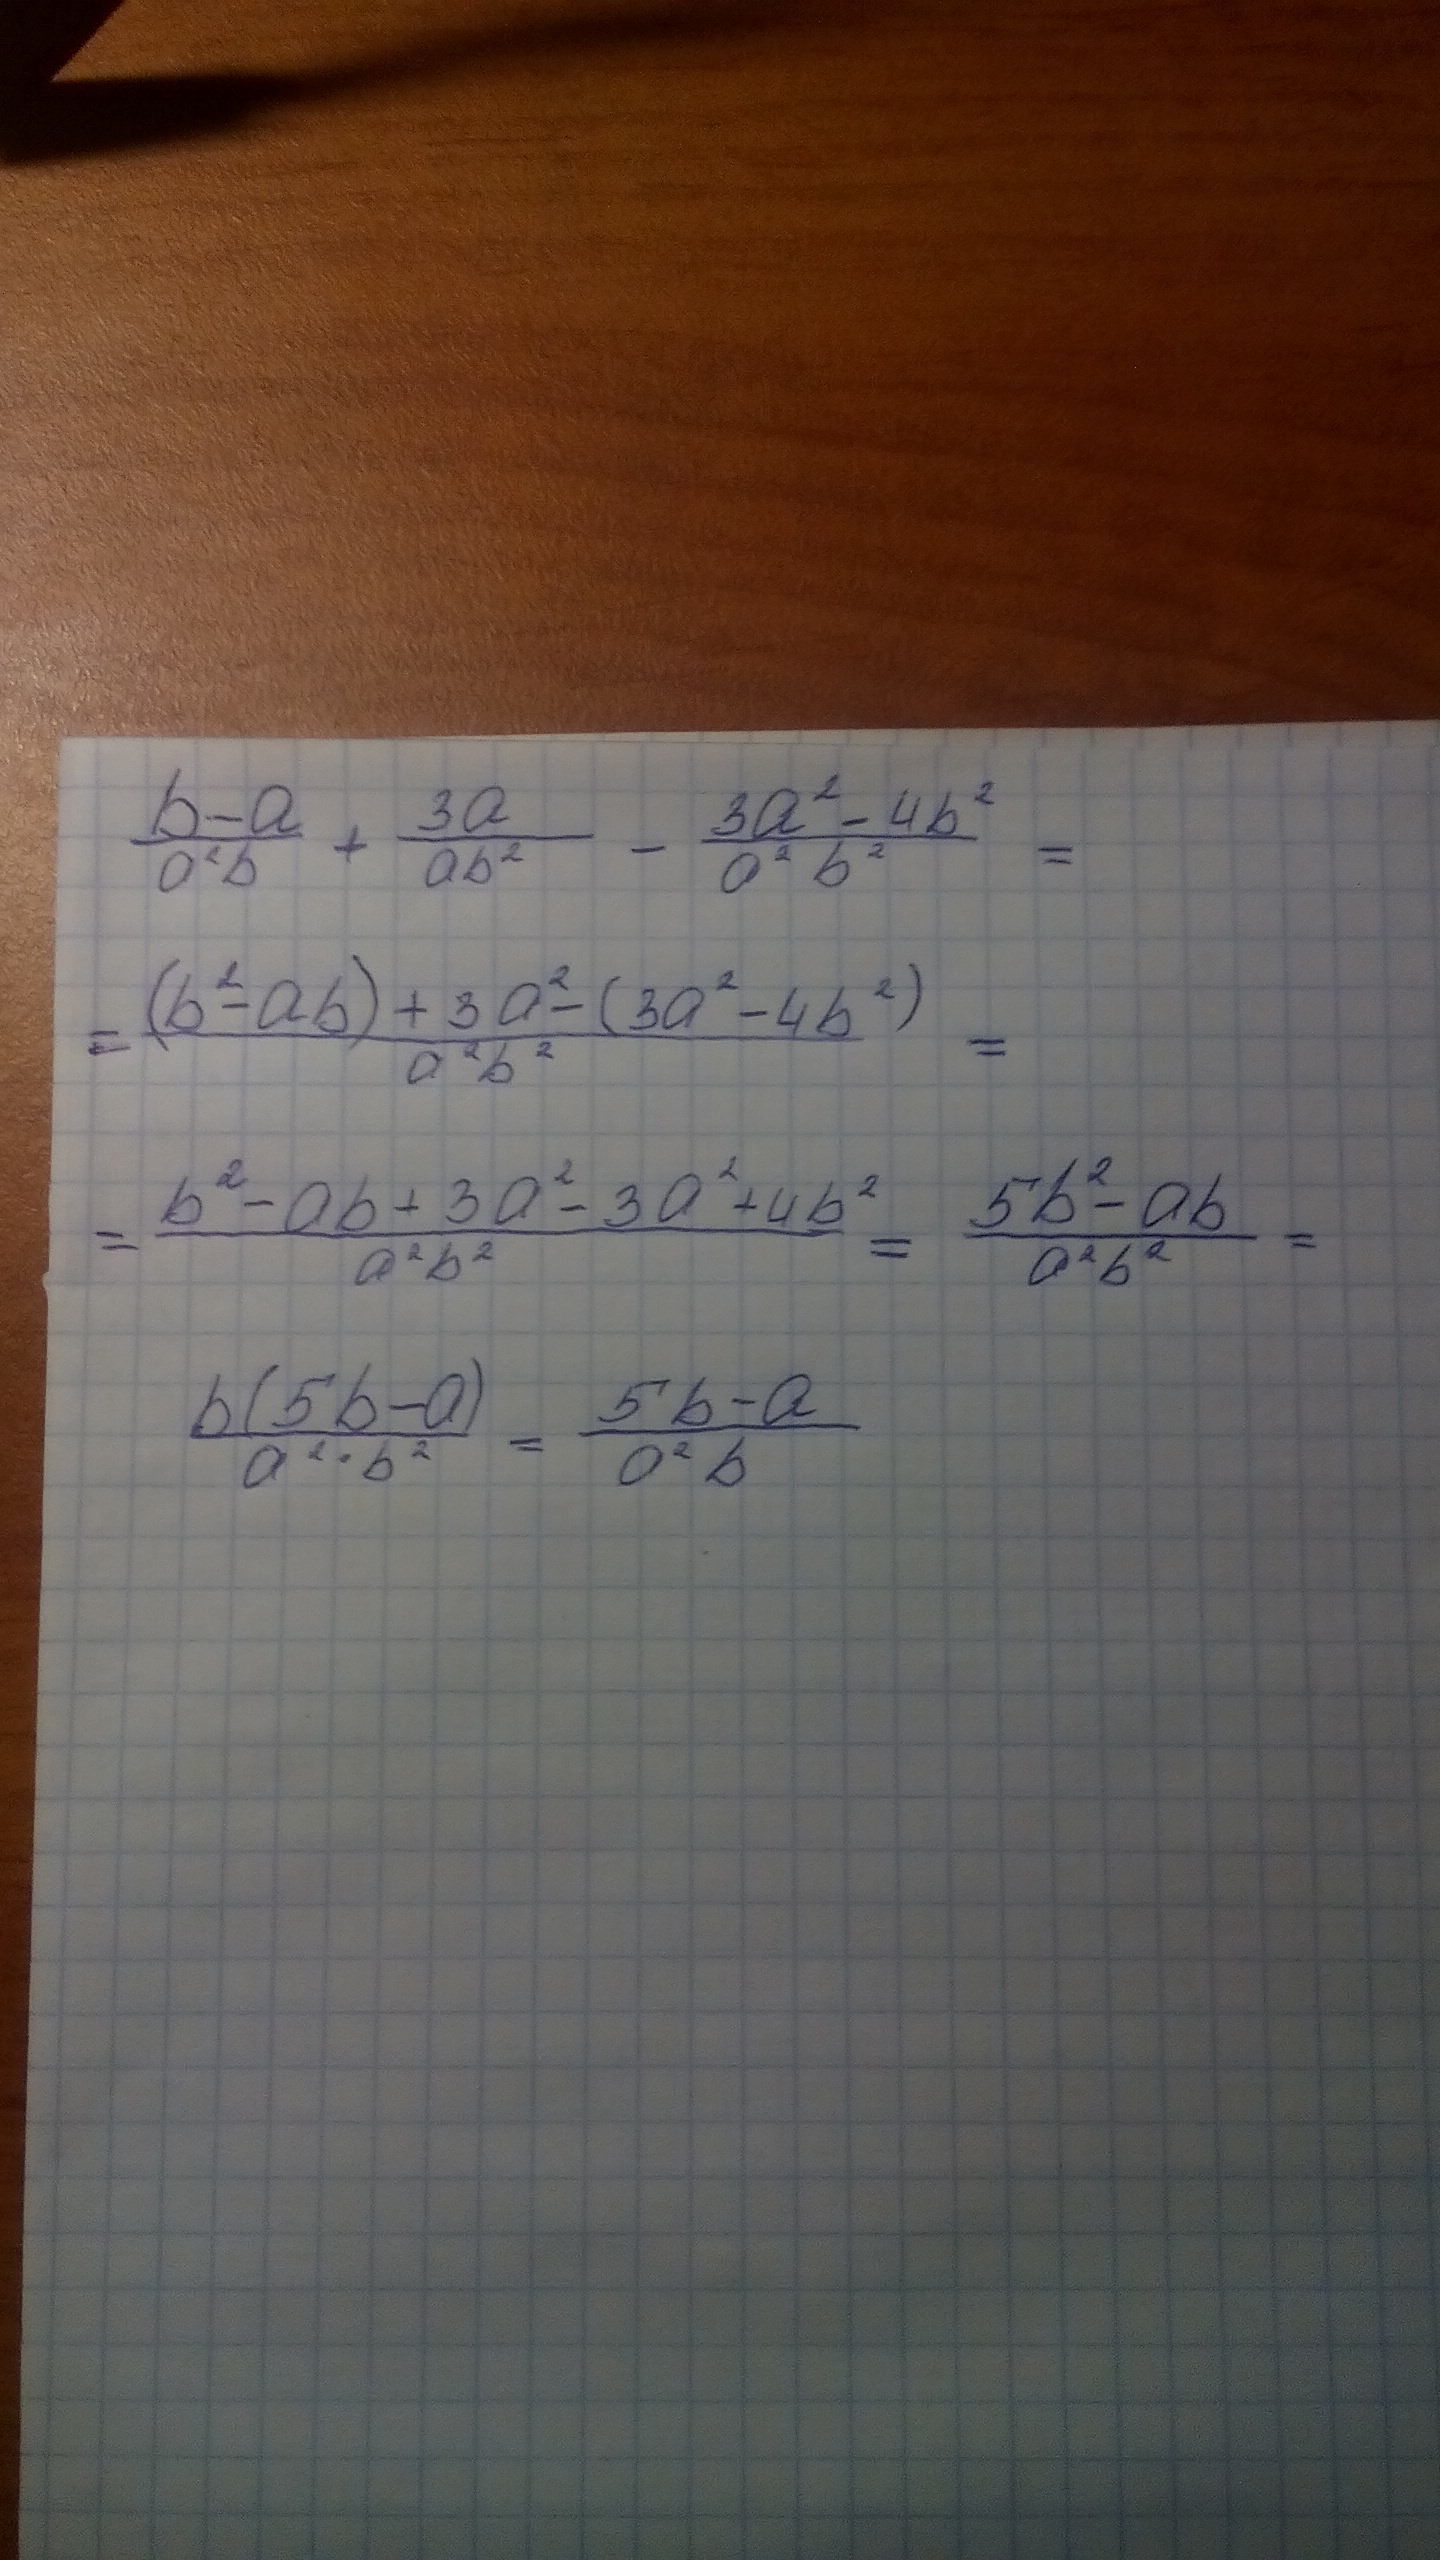 (b-a)/(a²b) + 3a/(ab²) - (3a²-4b²)/(a²b²) =
= ((b²-ab)+3a²-(3a²-4b²))/(a²b²) =
= (b²-ab+3a²-3a²+4b²)/(a²b²) = (5b²-ab)/(a²b²) =
b(5b-a)/(a²·b²) = (5b-a)/(a²b)